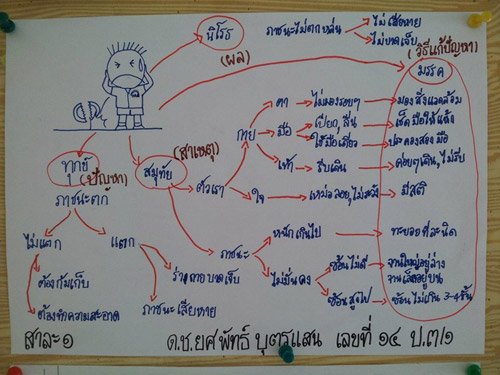 นิโรธ
(ผล)
ภาชนะไม่ตกหล่น
ไม่เสียหาย
ไม่บาดเจ็บ
(วิธีแก้ปัญหา)
มรรค
ทุกข์
(ปัญหา)
ภาชนะตก
ไม่แตก
ต้องก้มเก็บ
ต้องทำความสะอาด
แตก
ร่างกายบาดเจ็บ
ภาชนะเสียหาย
สมุทัย
(สาเหตุ)
ตัวเรา
กาย
ตา
ไม่มองรอบๆ
มองสิ่งแวดล้อม
มือ
เปียก, ลื่น
เช็ดมือให้แห้ง
ใช้มือเดียว
ประคองสองมือ
เท้า
รีบเดิน
ค่อยๆเดิน, ไม่รีบ
ใจ
เหม่อลอย, ไม่ระวัง
มีสติ
ภาชนะ
หนักเกินไป
ทะยอยทีละนิด
ไม่มั่นคง
ซ้อนไม่ดี
จานใหญ่อยู่ล่าง
จานเล็กอยู่บน
ซ้อนสูงไป
ซ้อนไม่เกิน 3-4 ชั้น
สาละ ๑
ด.ช.ยศพัทธ์ บุตรแสน เลขที่ ๑๔ ป.๓/๑